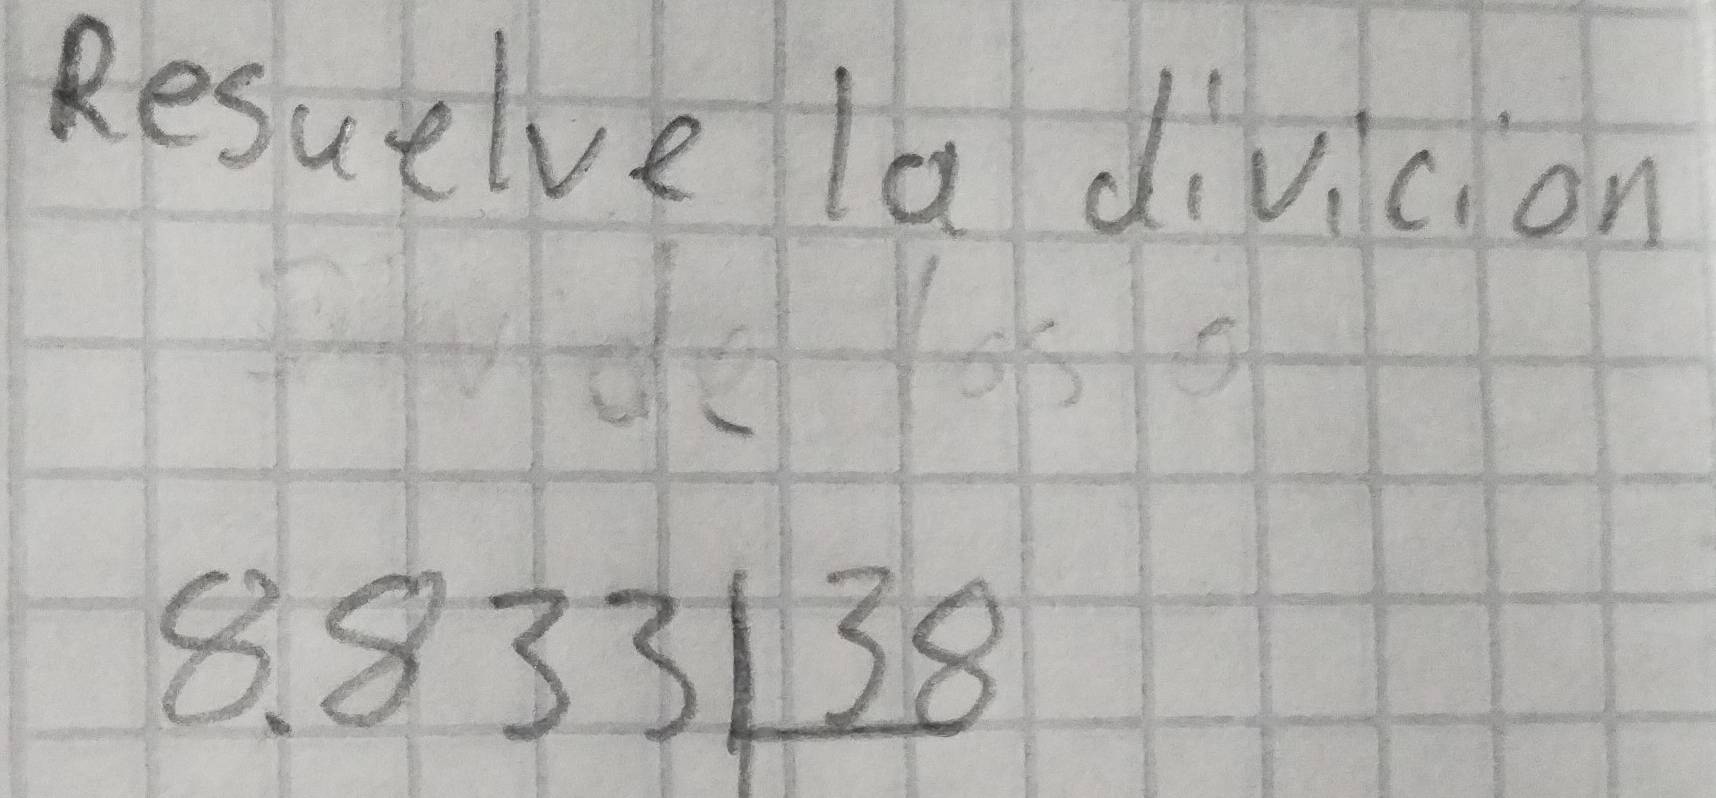 Resuelve la divicion
de los
8.833 38